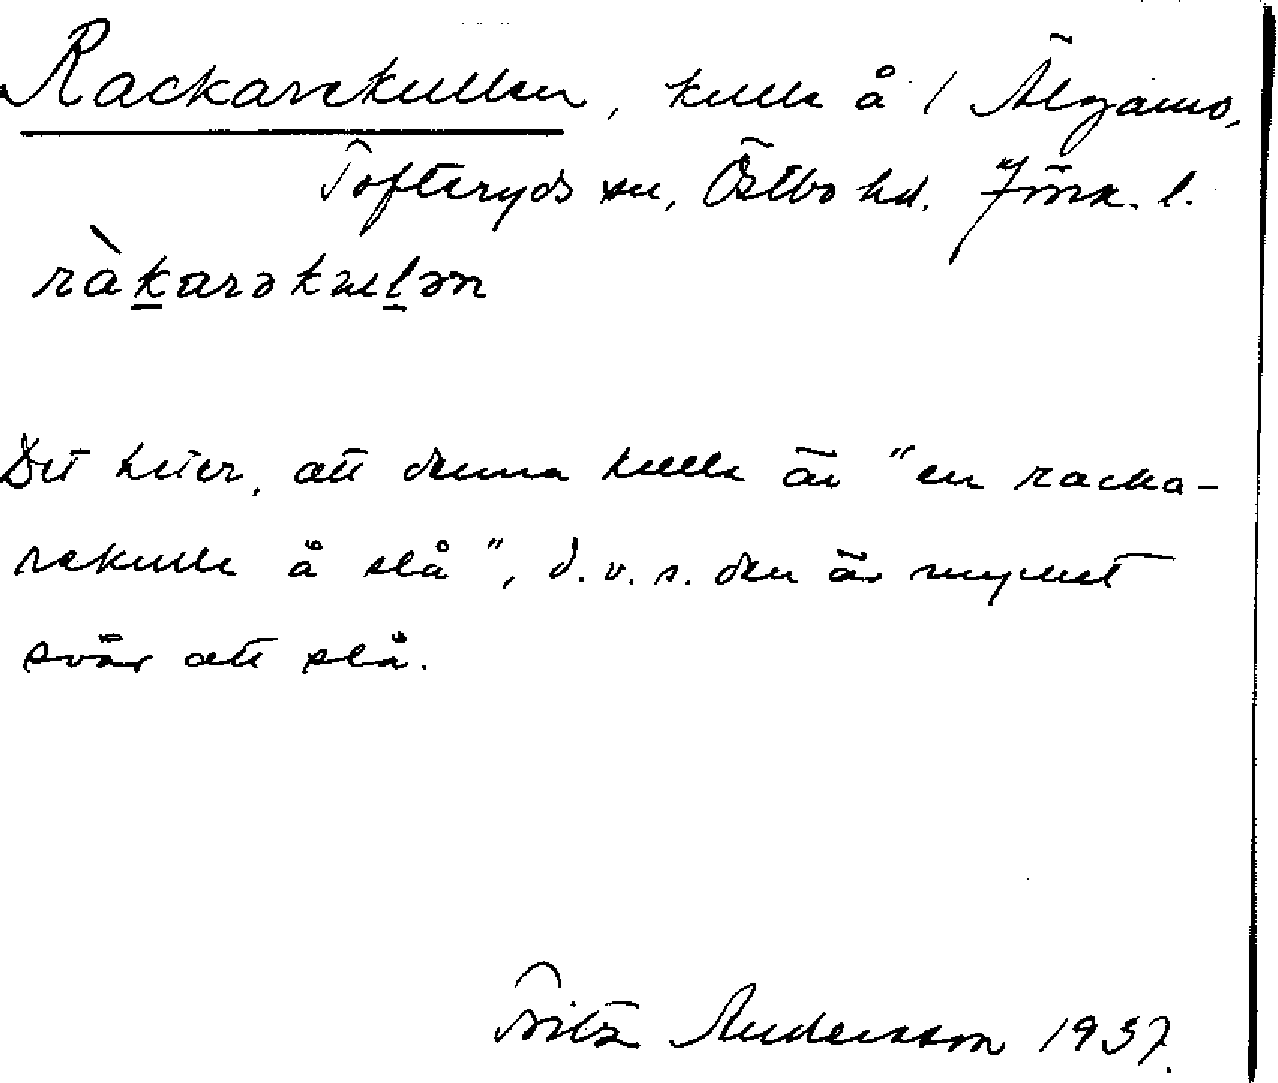 Rackarekullen, kulle å / Älganäs,
Tofteryds sn, Östbo hd. Jönk. l.
ràk̲arəkul̲ən
Det heter, att denna kulle är "en racka-
rekulle å slå", d.v.s. den är mycket
svår att slå.
Fritz Andersson 1937.